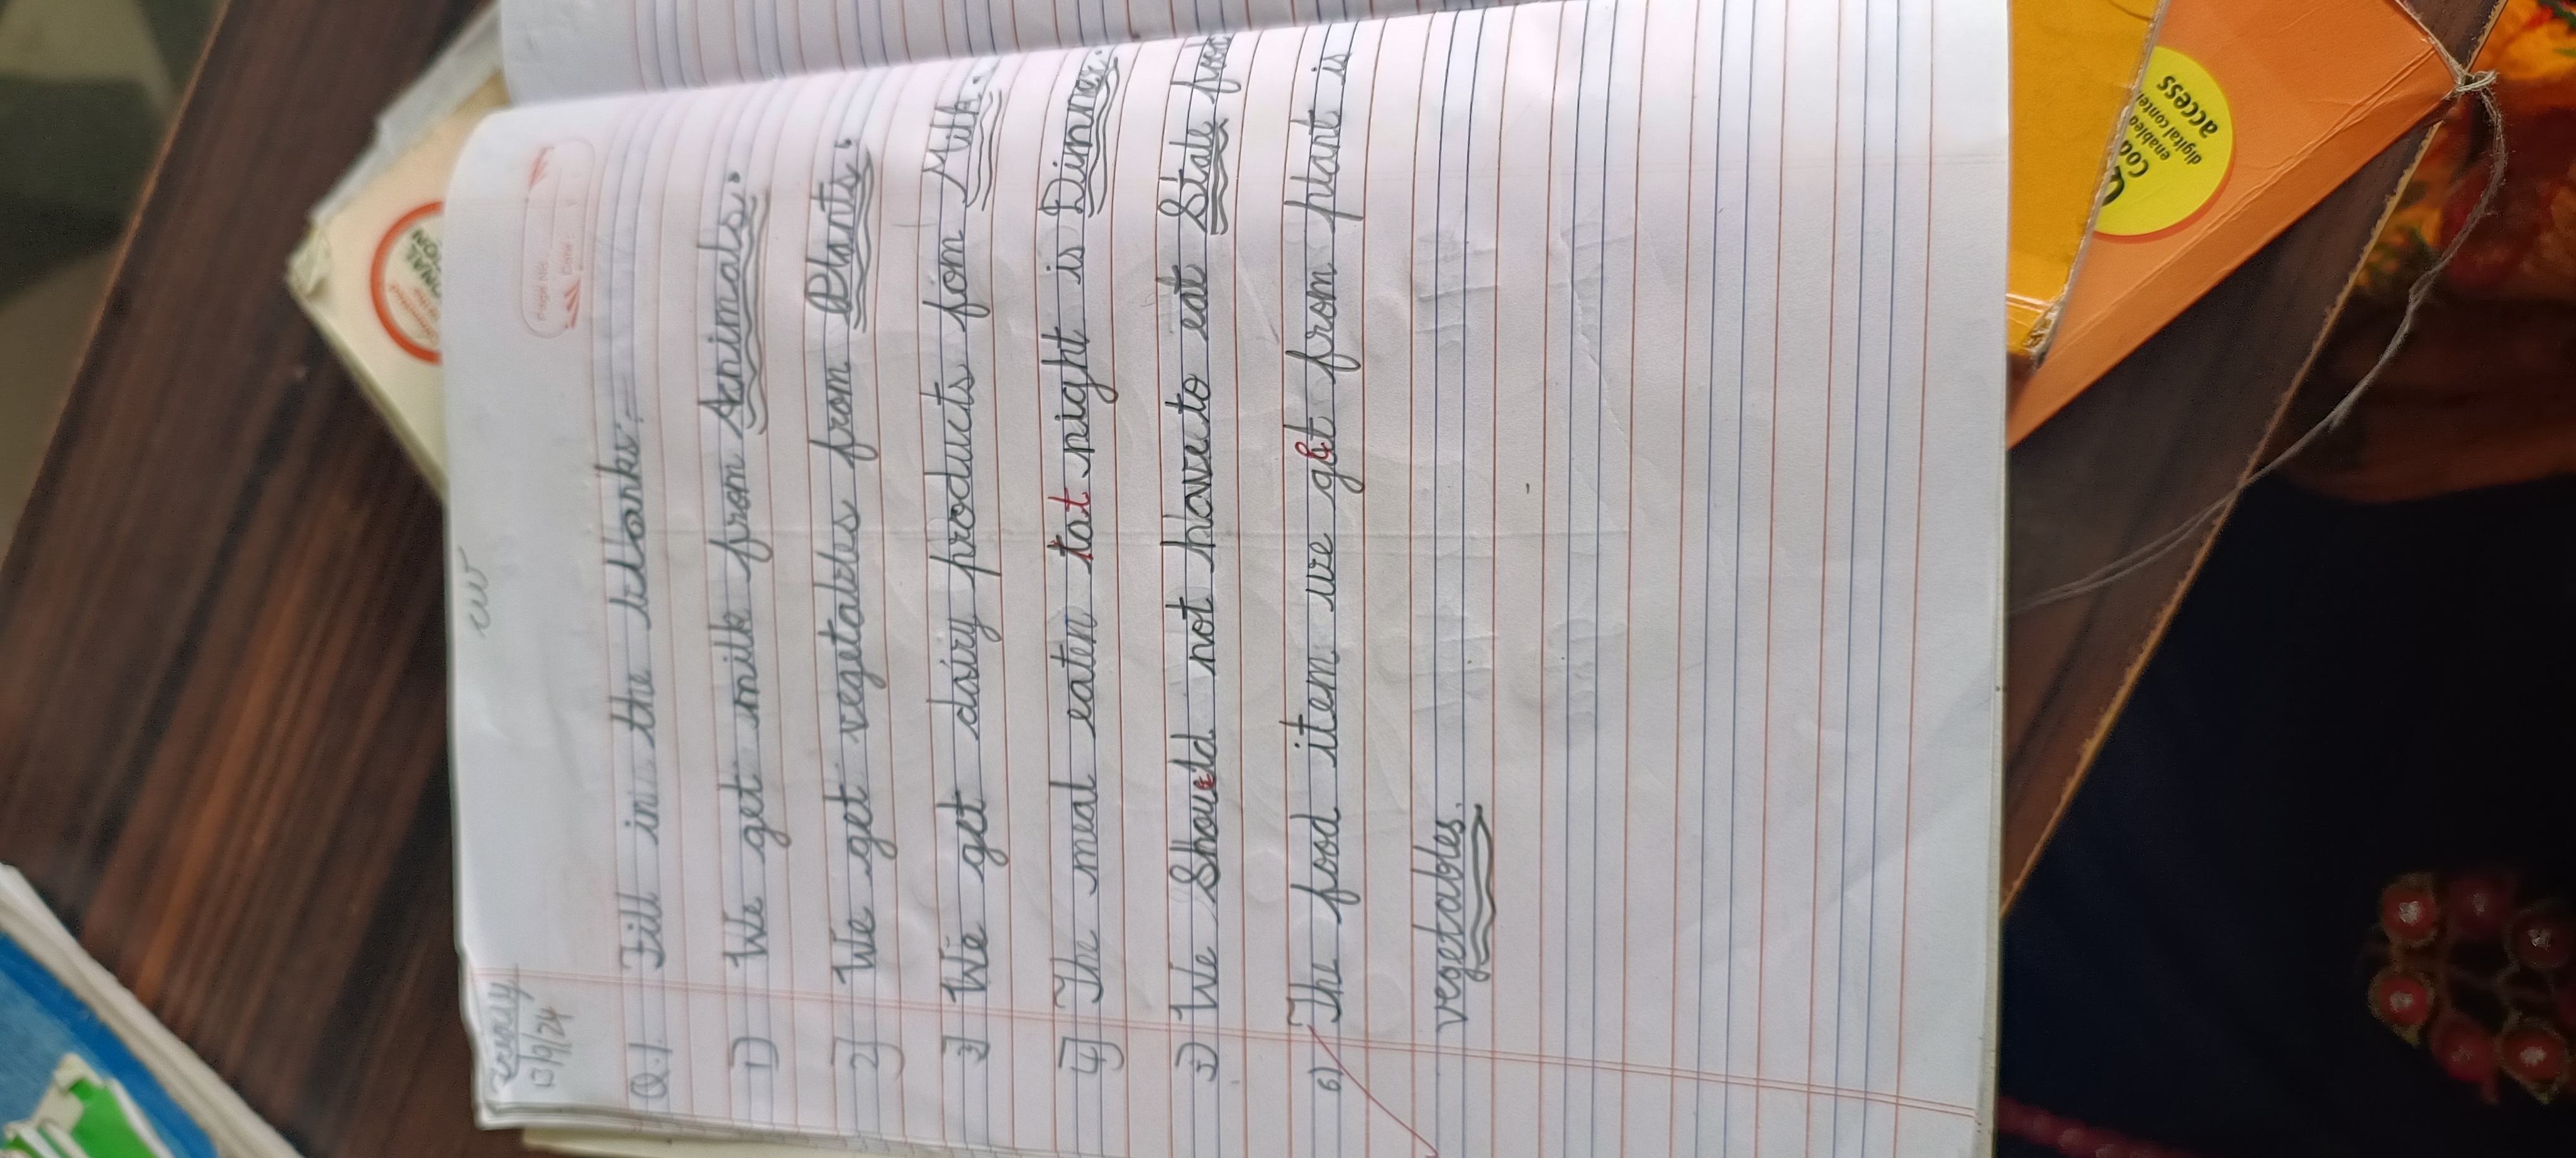 CW
13/9/24
Page No.
Date:
Q.1. Fill in the blanks:-
1) We get milk from Animals.
2) We get vegetables from Plants.
3) We get dairy products fom Milk.
4) The meal eaten tat night is Dinner.
5) We Should not have to eat Stale food
6) The food item we get from plant is
vegetables.
enabled
digital content
access